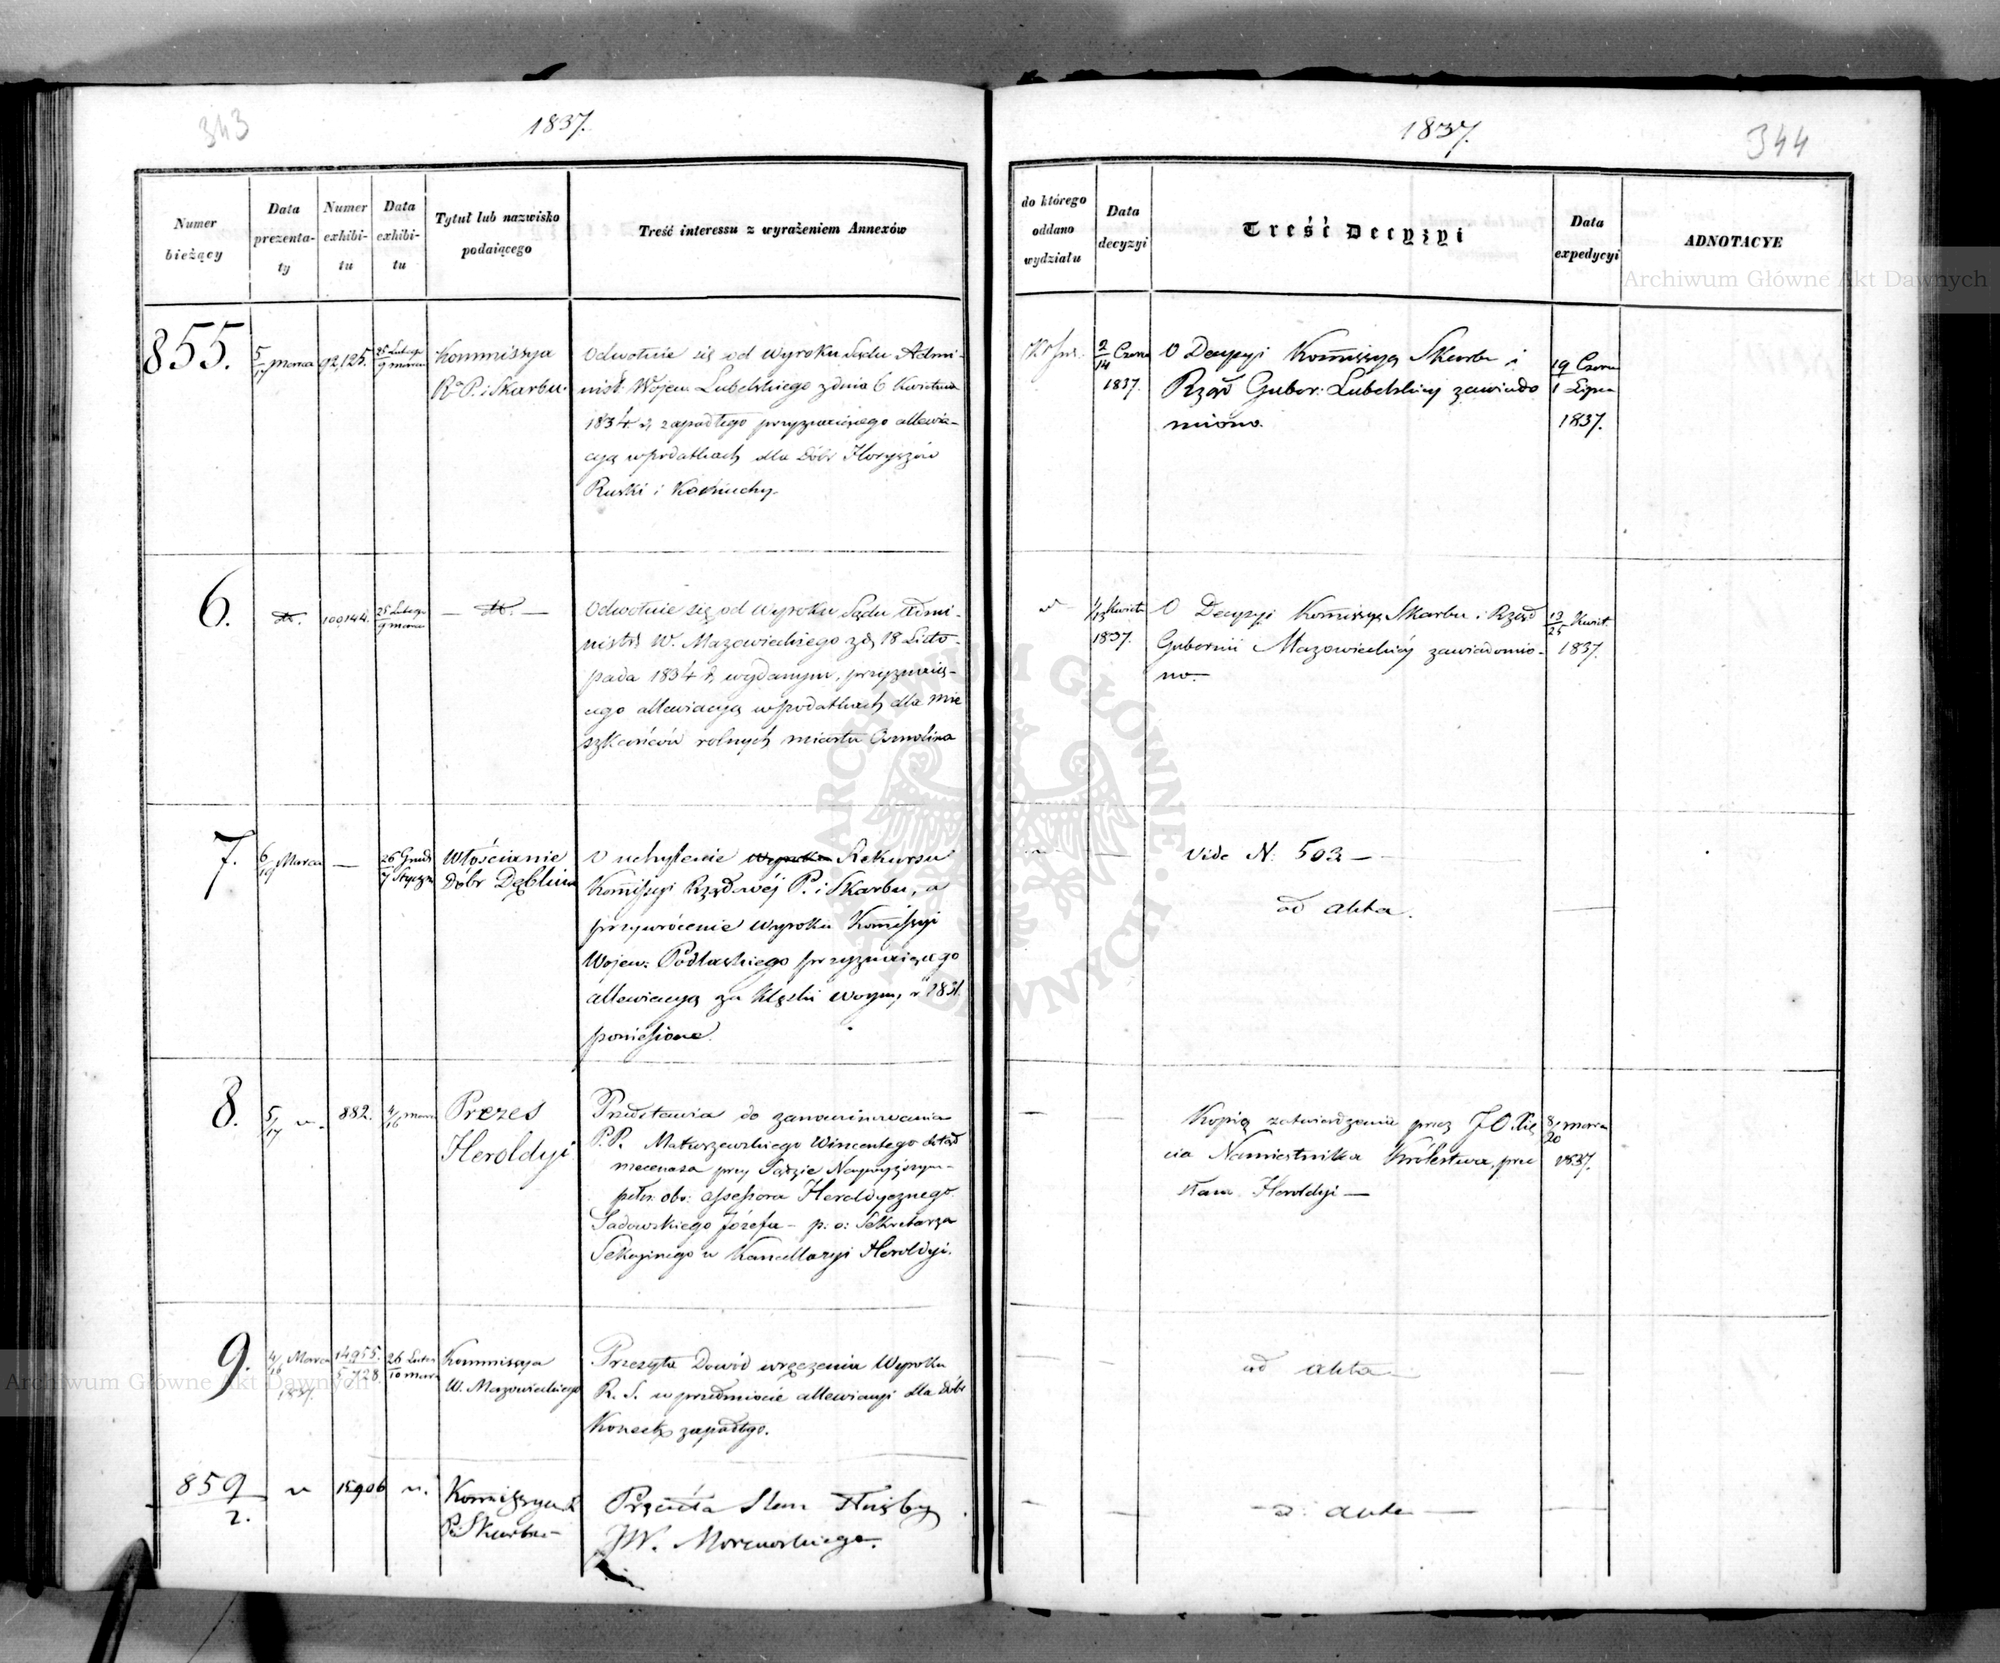 343
1837.
Numer bieżący
Data prezenta-ty
Numer exhibi-tu
Data exhibi-tu
Tytuł lub nazwisko podaiącego
Treść interessu z wyrażeniem Annexów
855.
5/17 Marca
92,125.
25 Lutego
9 Marca
Kommissya
R. P. i Skarbu.
Odwołuie się od Wyroku Sądu Admi-
nist. Wojew. Lubelskiego z dnia 6 Kwietnia
1834 r. zapadłego przyznaiącego allewia-
cyą w podatkach dla Dóbr Horyszów
Ruski i
6.
100144.
25 Lutego
9 Marca
Odwołuie się od Wyroku Sądu Admi-
nistr. W. Mazowieckiego z d. 18 Listo-
pada 1834 r. wydanym, przyznaią-
cego allewiacyą w podatkach dla mie
szkańców rolnych miasta
7.
6/18 Marca
—
26 Grud.
7 Stycznia
Włościanie
Dóbr Dęblina
O uchylenie Rekursu
Kommissyi Rządowéj P. i Skarbu, a
przywrócenie Wyroku Kommissyi
Wojew: Podlaskiego przyznaiącego
allewiacyą za klęski woyny w r. 1831.
poniesione.
8.
5/17
882.
4/16 Marca
Prezes
Heroldyi
Przedstawia do zanominowania
P.P. Matuszewskiego Wincentego dotąd
mecenasa przy Sądzie Naywyższym
pełn: obo: Assessora Heroldycznego
Sadowskiego Józefa – p: o: Sekretarza
w Kancellaryi Heroldyi.
9.
4/16 Marca
1837.
14955.
5728.
26 Lutego
10 Marca
Kommissya
W. Mazowieckiego
Przesyła Dowód wręczenia Wyroku
R. S. w przedmiocie allewiacyi dla Dóbr
Koneck zapadłego.
859
2.
15906
Kommissya R.
P. i Skarbu
Przesyła Stan Służby
JW. Morawskiego.
1837.
344
do którego oddano wydziału
Data decyzyi
Treść Decyzyi
Data expedycyi
ADNOTACYE
2/14 Czerw
1837.
O Decyzyi Kommissyą Skarbu i
Rząd Gubor: Lubelskiey zawiado
miono.
19 Czerw
1 Lipca
1837.
1/13 Kwiet
1837.
O Decyzyi Kommissyą Skarbu i Rząd
Gubernii Mazowieckiéy zawiadomio-
no.
13/25 Kwiet.
1837.
Vide N. 503 —
ad akta.
Kopią zatwierdzenia przez J O. Xię
cia Namiestnika Królestwa, prze
słano Heroldyi —
8/20 Marca
1837.
ad akta —
Archiwum Główne Akt Dawnych
Archiwum Główne Akt Dawnych
ARCHIWUM GŁÓWNE AKT DAWNYCH